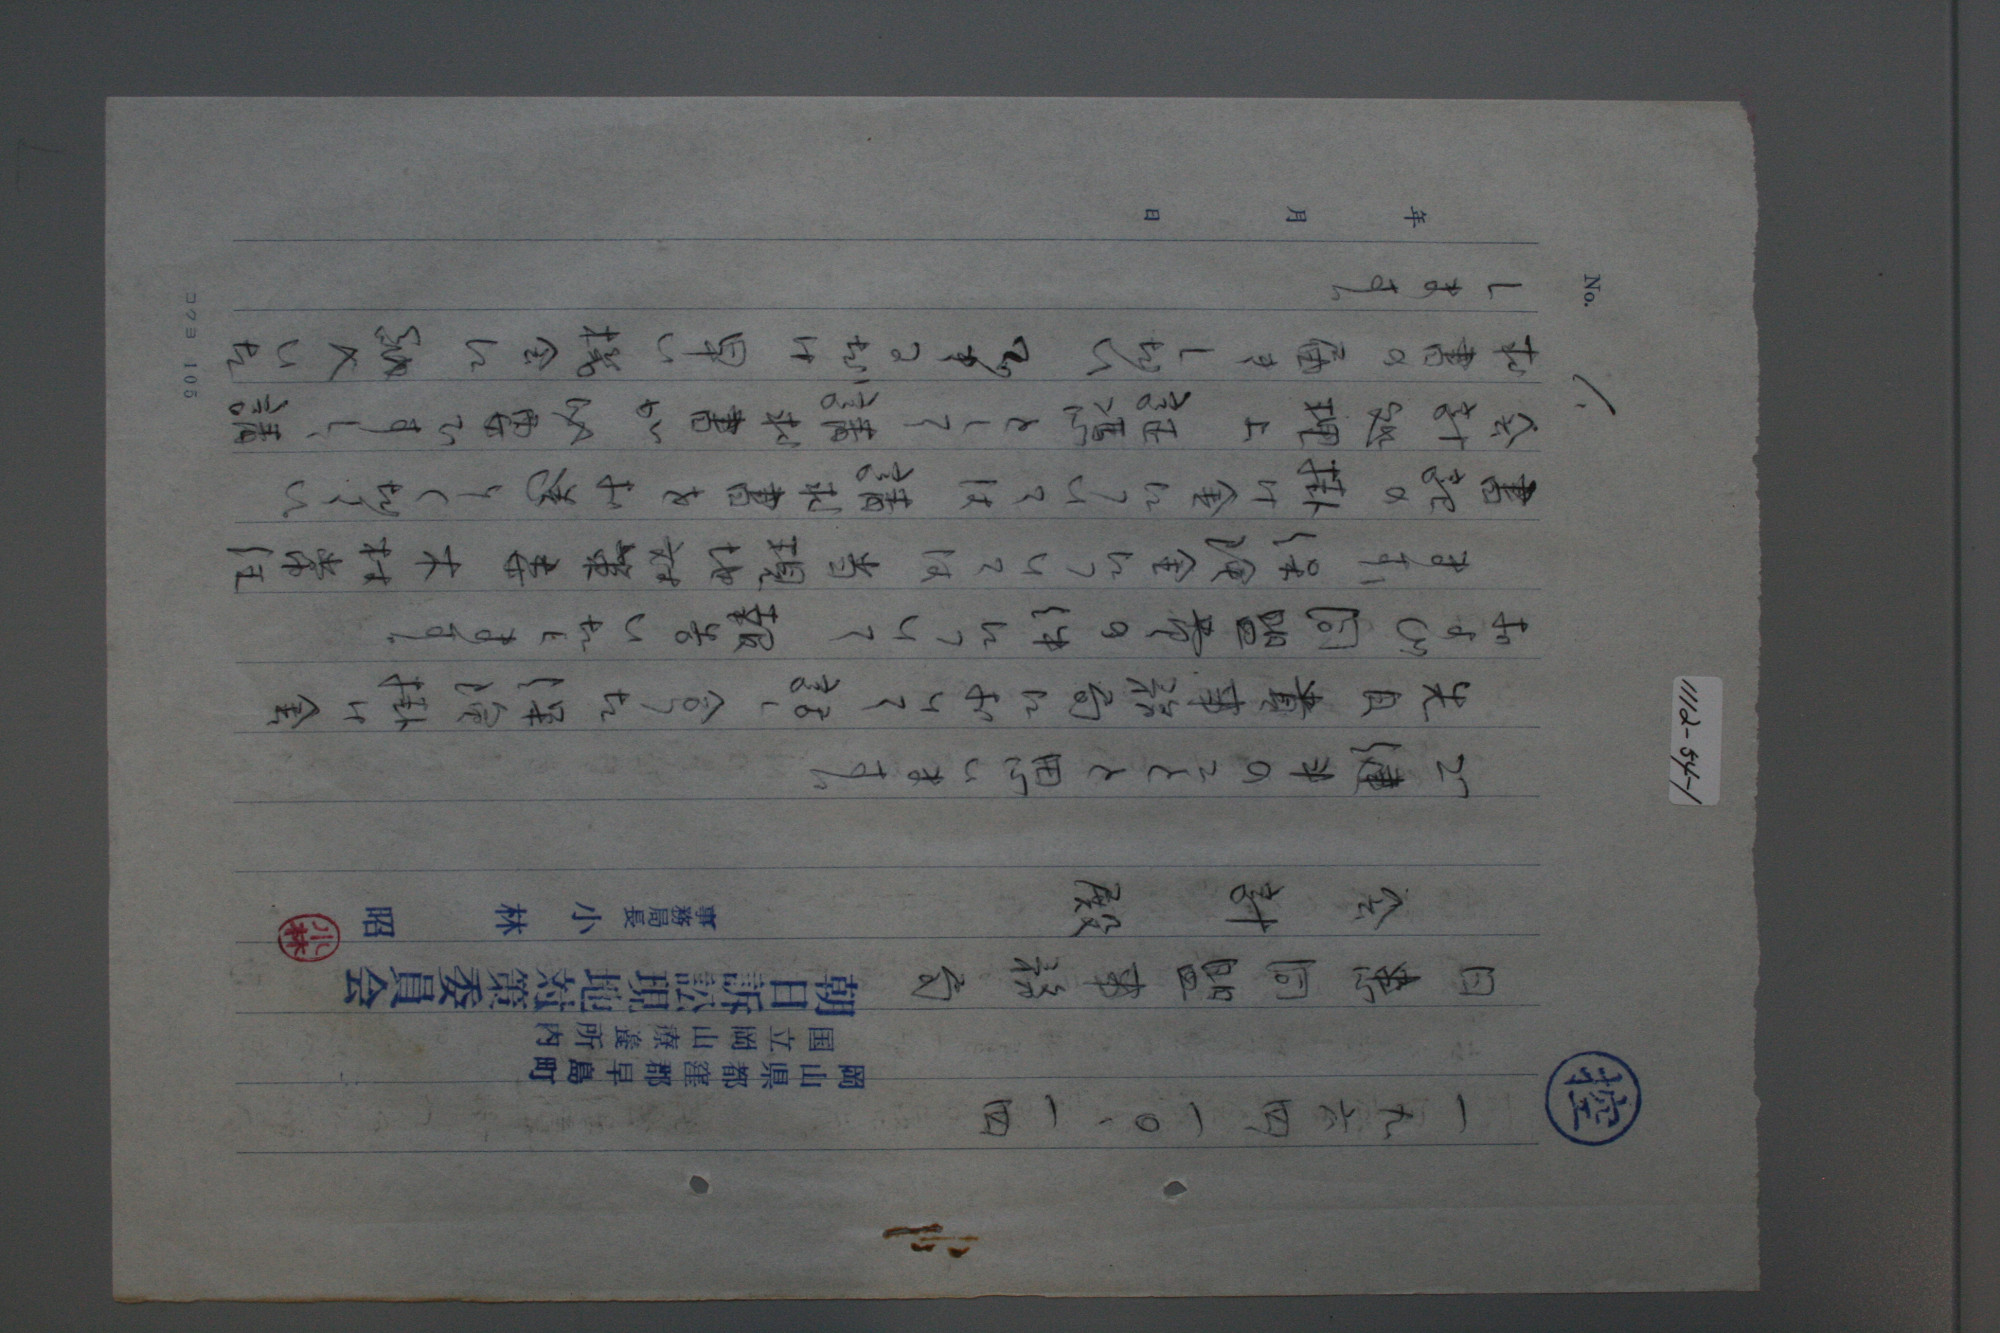 控
1112-54-1
No. 1.
年 月 日
一九六四 一〇、一四
岡山県都窪郡早島町
国立岡山療養所内
朝日訴訟現地対策委員会
事務局長 小林 昭
小林
日患同盟事務局
会計 殿
ご健斗のことと思います。
先日貴事務局において話し合った保険掛け金
および同盟費の件について 報告いたします。
まず、保険金については 当現地対策委 木村常任
書記の掛け金については 請求書をお送りください
会計処理上 証憑として請求書が必要ですし、請
求書の届きしだい できるだけ早い機会に納入いた
します。
コクヨ 105